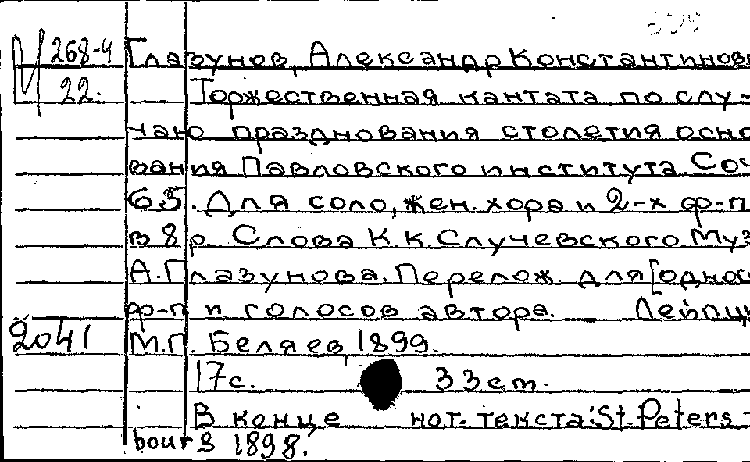 268-4 Глазунов, Александр Константинов
22. Торжественная кантата по слу-
чаю празднования столетия осно
вания Павловского института Соч
63. Для соло, жен. хора и 2-х ф-п
в 8 р. Слова К.К. Случевского Муз
А. Глазунова. Перелож. для [одно
ф-п и голосов автора. Лейпци
2041 М.П. Беляев, 1899.
17 с. 33 cm.
В конце нот. текста: St. Peters-
bourg 1898.